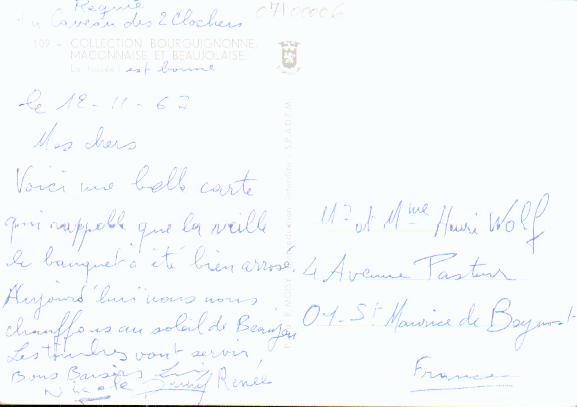 Requie
au Caveau des 2 Clochers
07100006
109 - COLLECTION BOURGUIGNONNE,
MACONNAISE ET BEAUJOLAISE.
est bonne
le 12-11-67
Mes chers
Voici une belle carte
qui rappelle que la veille
le banquet a été bien arrosé.
Aujourd'hui nous nous
chauffons au soleil de Beaujeu
Les timbres vont servir
Bons Baisers
Nicole Renée
Mr et Mme Henri Wolf
4 Avenue Pasteur
01-St Maurice de Beynost
France